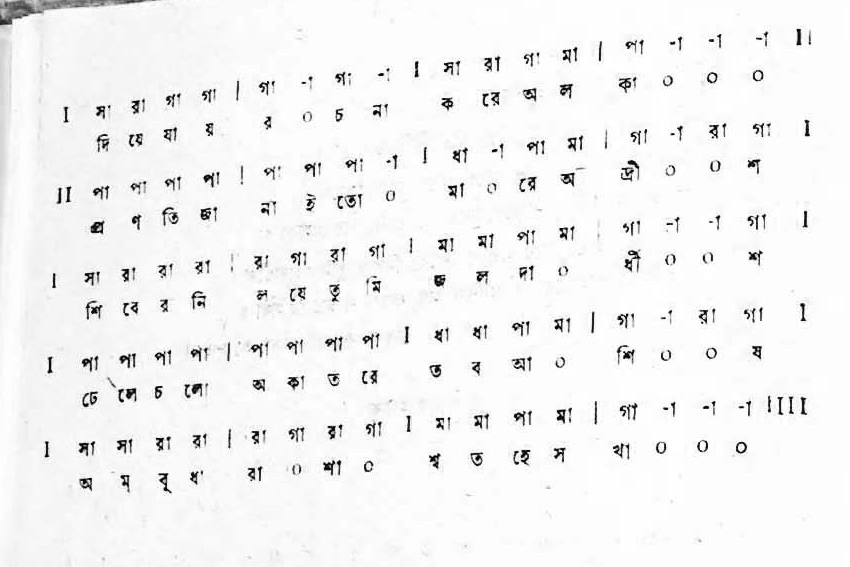 I সা রা গা গা | গা -া গা -া I সা রা গা মা | পা -া -া -া II
দি য়ে যা য় র ০ চ না ক রে অ ল কা ০ ০ ০
II পা পা পা পা | পা পা পা -া I ধা -া পা মা | গা -া রা গা I
প্র ণ তি জ্ঞা না ই তো ০ মা ০ রে অ দ্রী ০ ০ শ
I সা রা রা রা | রা গা রা গা | মা মা পা মা | গা -া -া গা I
শি বে র নি ল য়ে তু মি জ ল দা ০ ধী ০ ০ শ
I পা পা পা পা | পা পা পা পা I ধা ধা পা মা | গা -া রা গা I
ঢে লে চ লো অ কা ত রে ত ব আ ০ শি ০ ০ ষ
I সা সা রা রা | রা গা রা গা I মা মা পা মা | গা -া -া -া IIII
অ ম্ বূ ধা রা ০ শা ০ শ্ব ত হে স খা ০ ০ ০